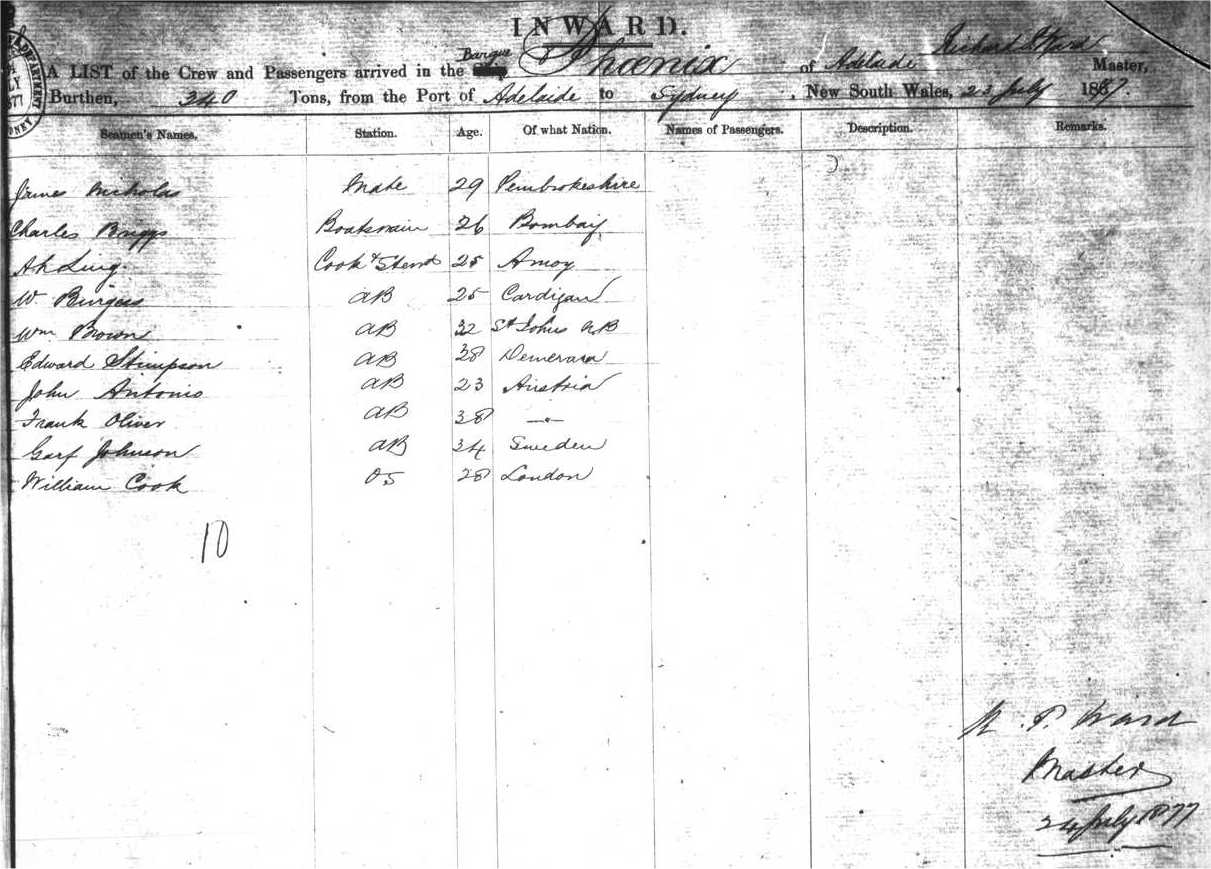 INWARD.
A LIST of the Crew and Passengers arrived in the Barque Phœnix of Adelaide Richard P Ward Master,
Burthen, 340 Tons, from the Port of Adelaide to Sydney, New South Wales, 23 July 1867.
Seamen's Names. Station. Age. Of what Nation. Names of Passengers. Description. Remarks.
James Nicholas Mate 29 Pembrokeshire
Charles Briggs Boatswain 26 Bombay
Ah Ling Cook & Stewd 25 Amoy
W Burgess AB 25 Cardigan
Wm Brown AB 32 St Johns NB
Edward Stimpson AB 38 Demerara
John Antonio AB 23 Austria
Frank Oliver AB 38 —"—
Johnson AB 34 Sweden
William Cook OS 28 London
10
R. P. Ward
Master
24 July 1877